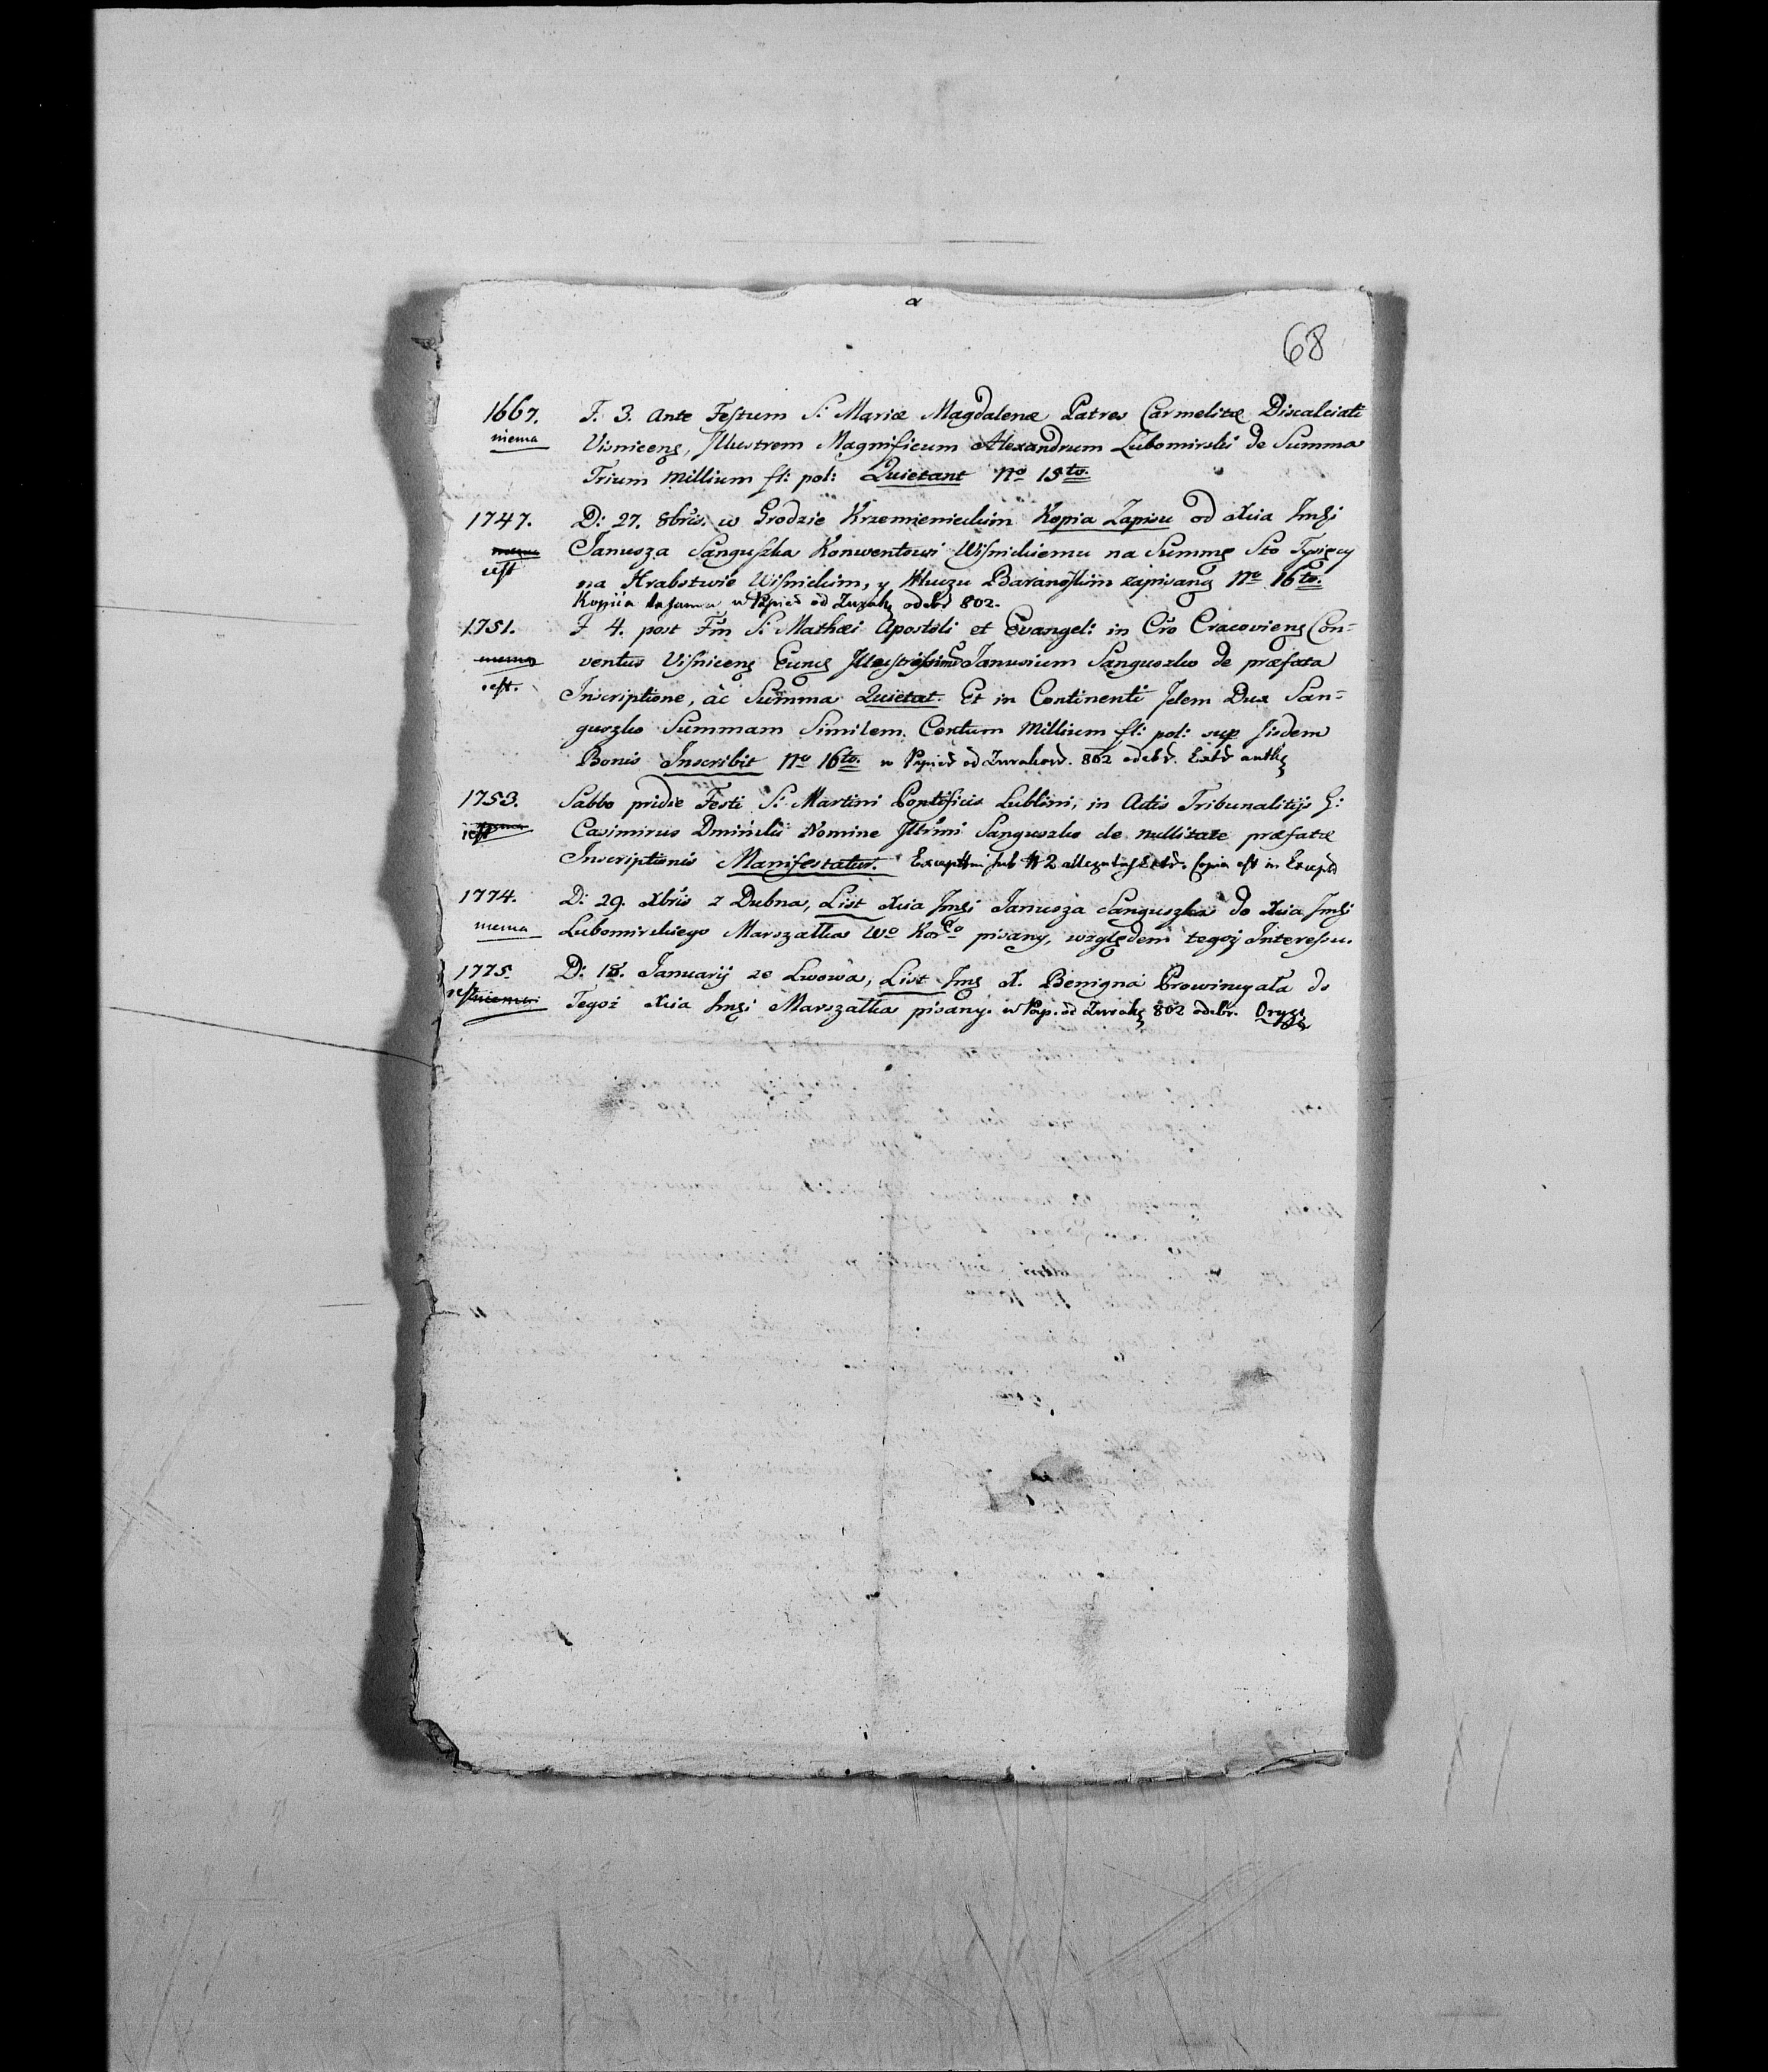 68
1667. F. 3. Ante Festum S: Mariæ Magdalenæ Patres Carmelitæ Discalciati
niema Visnicens, Illustrem Magnificum Alexandrum Lubomirski de Summa
Trium Millium fl: pol: Quietant No 15to.
1747. D: 27. 8bris. w Grodzie Krzemienieckim Kopia Zapisu od Xcia Jmći
niema Janusza Sanguszka Konwentowi Wiśnickiemu na Summę Sto Tysięcy
iest na Hrabstwie Wiśnickim, y Kluczu Baranoskim zapisaną No 16to.
Kopiia ta sama w Papier od Zurak odebr 802.
1751. F. 4. post Fm S: Mathæi Apostoli et Evangel: in Cro Cracoviens Con=
niema ventus Visnicens Illustrissimum Janusium Sanguszko de præfata
iest. Inscriptione, ac Summa Quietat. Et in Continenti Idem Dux San=
guszko Summam Similem Centum Millium fl: pol: sup iisdem
Bonis Inscribit No 16to. w Papier od Zurakow. 802 odebr. Extr auth
1753. Sabbo pridie Festi S: Martini Pontificis Lublini, in Actis Tribunalitijs G:
iest Casimirus Nomine Illrimi Sanguszko de nullitate præfatæ
Inscriptionis Manifestatur. sub # 2 Extr. Copia est in
1774. D: 29. Xbris z Dubna, List Xcia Jmći Janusza Sanguszka do Xcia Jmći
niema Lubomirskiego Marszałka Wo Korgo pisany, względem tegoż Interessu.
1775. D: 18. Januarij ze Lwowa, List Jmć X. Benigna Prowincyała do
iest niema Tegoż Xcia Jmći Marszałka pisany. w Pap. od Zurak 802 odebr. Oryg